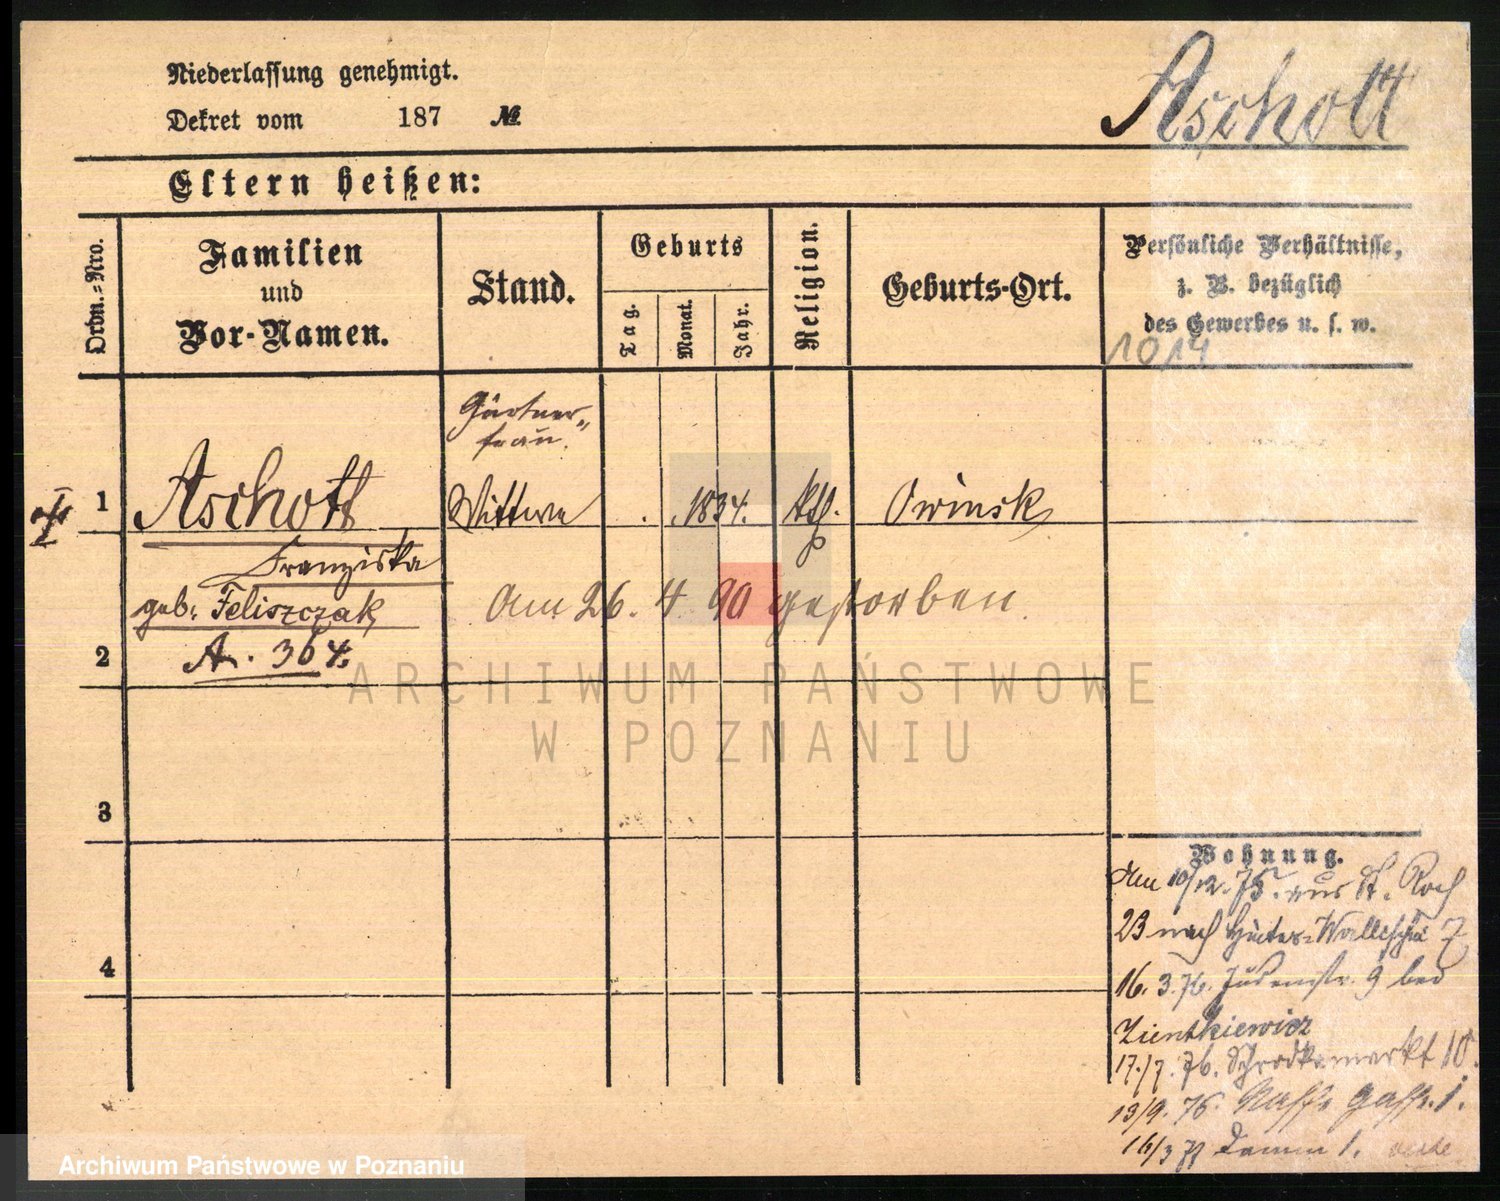 Niederlassung genehmigt.
Dekret vom 187 №
Aschott
Eltern heißen:
Ordn.-Nro.
Familien
und
Vor-Namen.
Stand.
Geburts
Tag.
Monat.
Jahr.
Religion.
Geburts-Ort.
Persönliche Verhältnisse,
z. B. bezüglich
des Gewerbes u. s. w.
1014
Gärtner-
frau.
1 Aschott Wittwe 1834. kth. Owinsk
Franziska
geb. Feliszczak
Am 26. 4 90 gestorben
2 A. 364.
3
4
Wohnung.
Am 10/12. 75. aus St. Roch
23 nach Hinter-Wallischei 7
16. 3. 76. Judenstr. 9 bei
Zientkiewicz
17./7. 76. Schrodkamarkt 10.
13/9. 76. Gasse. 1.
16/3 77 Damm 1.
ARCHIWUM PAŃSTWOWE
W POZNANIU
Archiwum Państwowe w Poznaniu